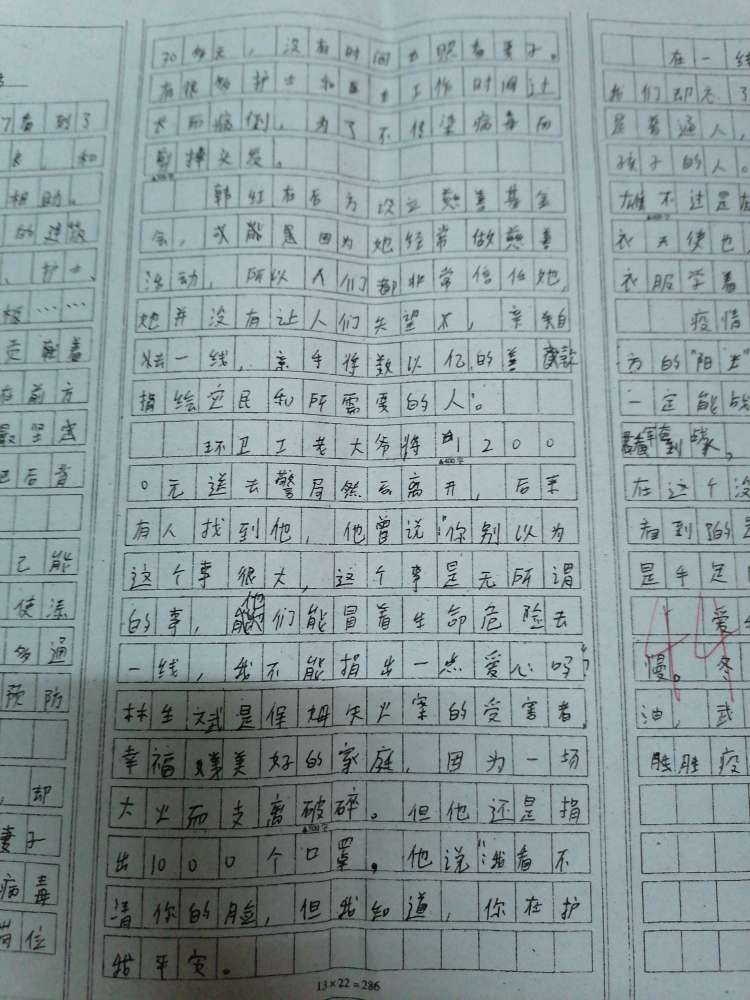 了看到了
相助。
护士、
极……
在前方
最坚
把后背
己能
多通
预防
却
妻子
病毒
岗位
30多天，没有时间去照看妻子。
有很多护士和医力工作时间过
长而病倒，为了不传染病毒而
剪掉头发。
韩红在后方次立慈善基金
会，或能是因为她经常做慈善
活动，所以人们都非常信任她，
她并没有让人们失望不，亲自
去一线，亲手将数以亿的善款
捐给灾民和所需要的人。
环卫工老大爷将自1200
0元送去警局然后离开，后来
有人找到他，他曾说“你别以为
这个事很大，这个事是无所谓
的事，他们能冒着生命危险去
一线，我不能捐出一点爱心吗？”
林生斌是保姆失火案的受害者，
幸福美好的家庭，因为一场
大火而支离破碎。但他还是捐
出1000个口罩。他说“我看不
清你的脸，但我知道，你在护
我平安。
13×22=286
在一线
我们却无了
是普通人，
孩子的人。
雄不过是在
衣天使也
衣服学着
疫情
方的“阳光”
一定能战
在这个没
看到的是
是手足
爱
慢。冬
油，武
胜胜疫
44